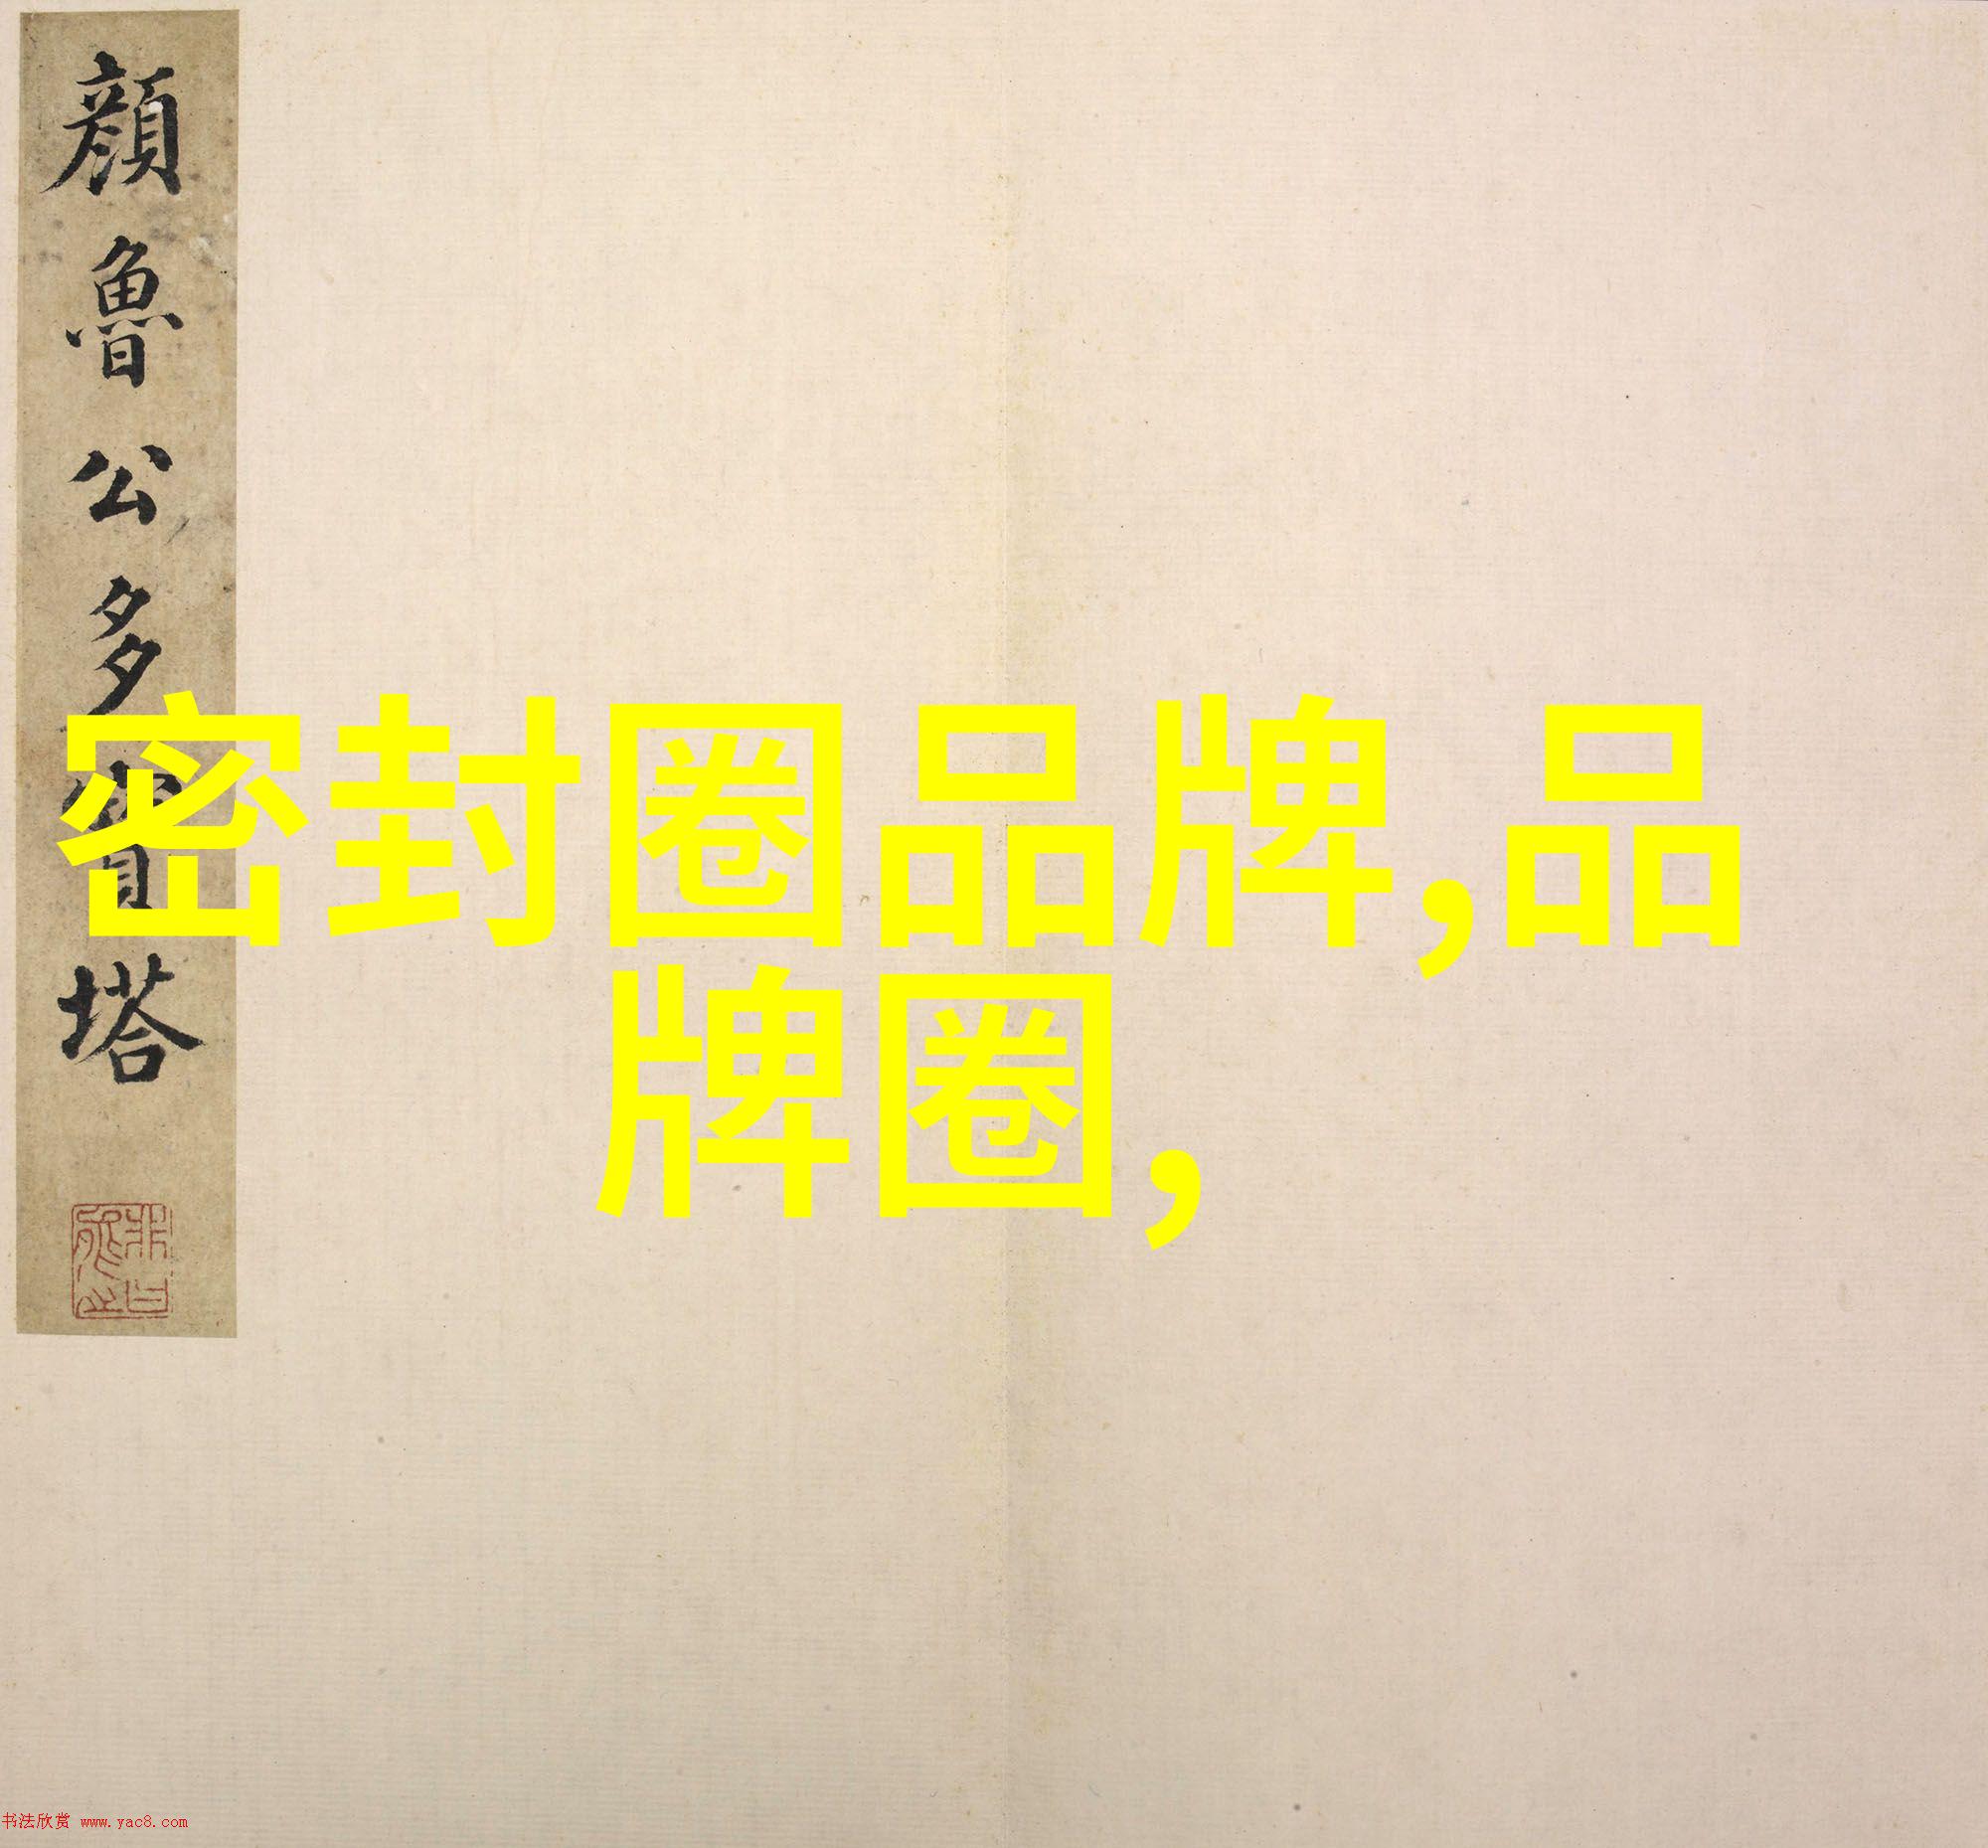 顔魯公多寶塔
密封圈品牌,品
牌圈,
书法欣赏 www.yac8.com